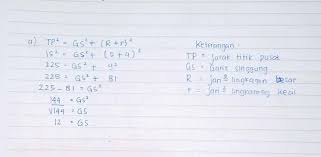 a) TP² = GS² + (R + r)²
15² = GS² + (5 + 4)²
225 = GS² + 9²
225 = GS² + 81
225 - 81 = GS²
144 = GS²
√144 = GS
12 = GS
Keterangan :
TP = jarak titik pusat
GS = Garis singgung
R = jari² lingkaran besar
r = jari² lingkaran kecil